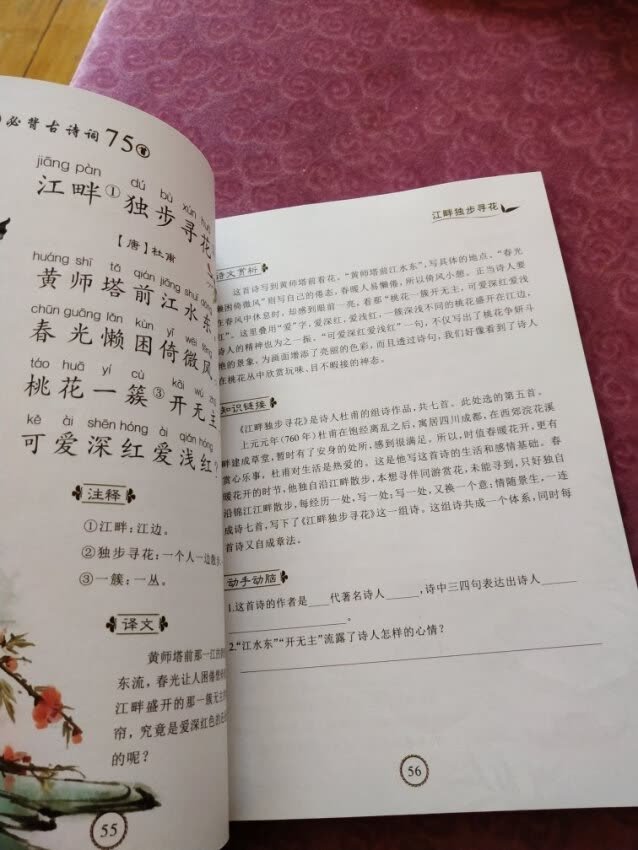 必背古诗词75首
jiāng pàn dú bù xún huā
江畔①独步寻花
【唐】杜甫
huáng shī tǎ qián jiāng shuǐ dōng
黄师塔前江水东
chūn guāng lǎn kùn yǐ wēi fēng
春光懒困倚微风
táo huā yí cù kāi wú zhǔ
桃花一簇③开无主
kě ài shēn hóng ài qiǎn hóng
可爱深红爱浅红?
注释
①江畔:江边。
②独步寻花:一个人一边散步
③一簇:一丛。
译文
黄师塔前那一江
东流,春光让人困倦
江畔盛开的那一簇无主
帘,究竟是爱深红色的
的呢?
55
江畔独步寻花
诗文赏析
这首诗写到黄师塔前看花。“黄师塔前江水东”,写具体的地点。“春光
懒困倚微风”则写自己的倦态,春暖人易懒倦,所以倚风小憩。正当诗人要
在春风中休息时,却感到眼前一亮,看那“桃花一簇开无主,可爱深红爱浅
红”。这里叠用“爱”字,爱深红,爱浅红,一簇深浅不同的桃花盛开在江边,
诗人的精神也为之一振。“可爱深红爱浅红”一句,不仅写出了桃花争妍斗
艳的景象,为画面增添了亮丽的色彩,而且透过诗句,我们好像看到了诗人
在桃花丛中欣赏玩味、目不暇接的神态。
知识链接
《江畔独步寻花》是诗人杜甫的组诗作品,共七首。此处选的第五首。
上元元年(760年)杜甫在饱经离乱之后,寓居四川成都,在西郊浣花溪
畔建成草堂,暂时有了安身的处所,感到很满足。所以,时值春暖花开,更有
赏心乐事,杜甫对生活是热爱的。这是他写这首诗的生活和感情基础。春
暖花开的时节,他独自沿江畔散步,本想寻伴同游赏花,未能寻到,只好独自
沿锦江江畔散步,每经历一处,写一处;写一处,又换一个意;情随景生,一连
成诗七首,写下了《江畔独步寻花》这一组诗。这组诗共成一个体系,同时每
首诗又自成章法。
动手动脑
1.这首诗的作者是____代著名诗人______,诗中三四句表达出诗人______
______________。
2.“江水东”“开无主”流露了诗人怎样的心情?
56